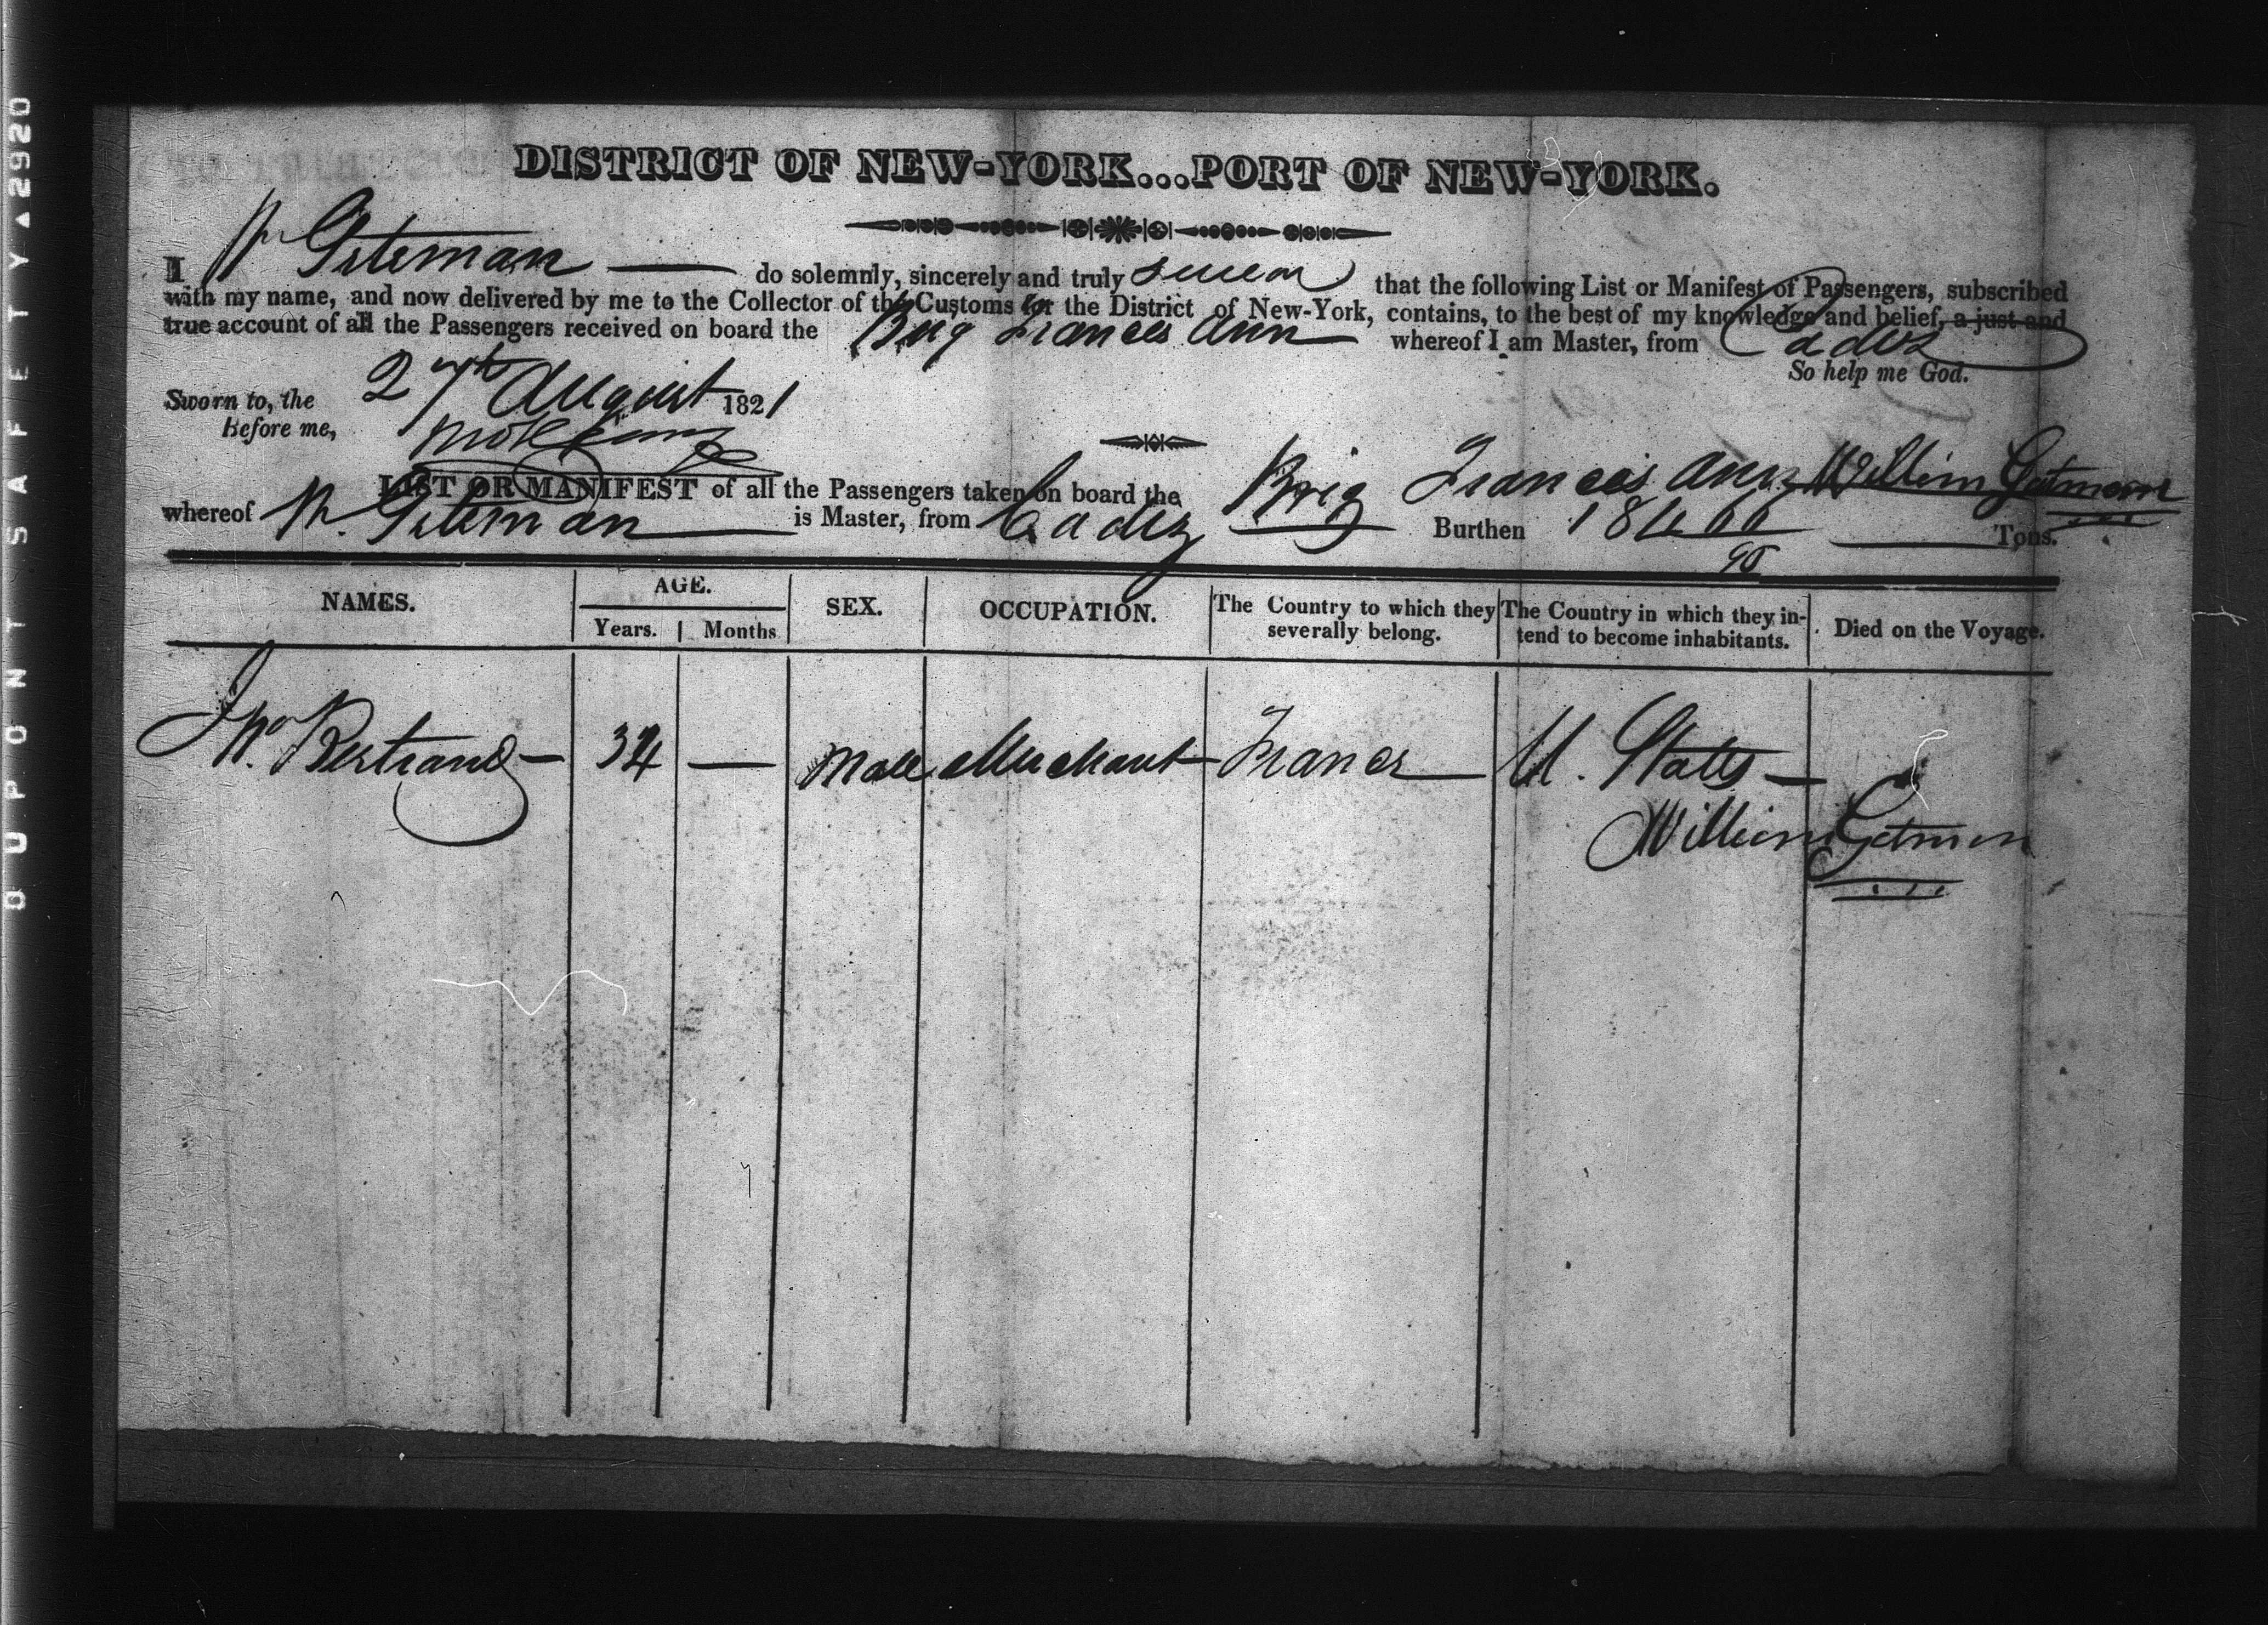 DUPONT SAFETY ▲ 2920
DISTRICT OF NEW-YORK...PORT OF NEW-YORK.
I Wm Giteman do solemnly, sincerely and truly swear that the following List or Manifest of Passengers, subscribed
with my name, and now delivered by me to the Collector of the Customs for the District of New-York, contains, to the best of my knowledge and belief, a just and
true account of all the Passengers received on board the Brig Frances Ann whereof I am Master, from Cadiz
So help me God.
Sworn to, the 27th August 1821
Before me,
LIST OR MANIFEST of all the Passengers taken on board the Brig Frances Ann William Getman
whereof W. Giteman is Master, from Cadiz Burthen Tons.
NAMES. AGE. SEX. OCCUPATION. The Country to which they severally belong. The Country in which they intend to become inhabitants. Died on the Voyage.
Years. Months
Jno. Bertrand — 34 — Male Merchant France U. States —
William Getman